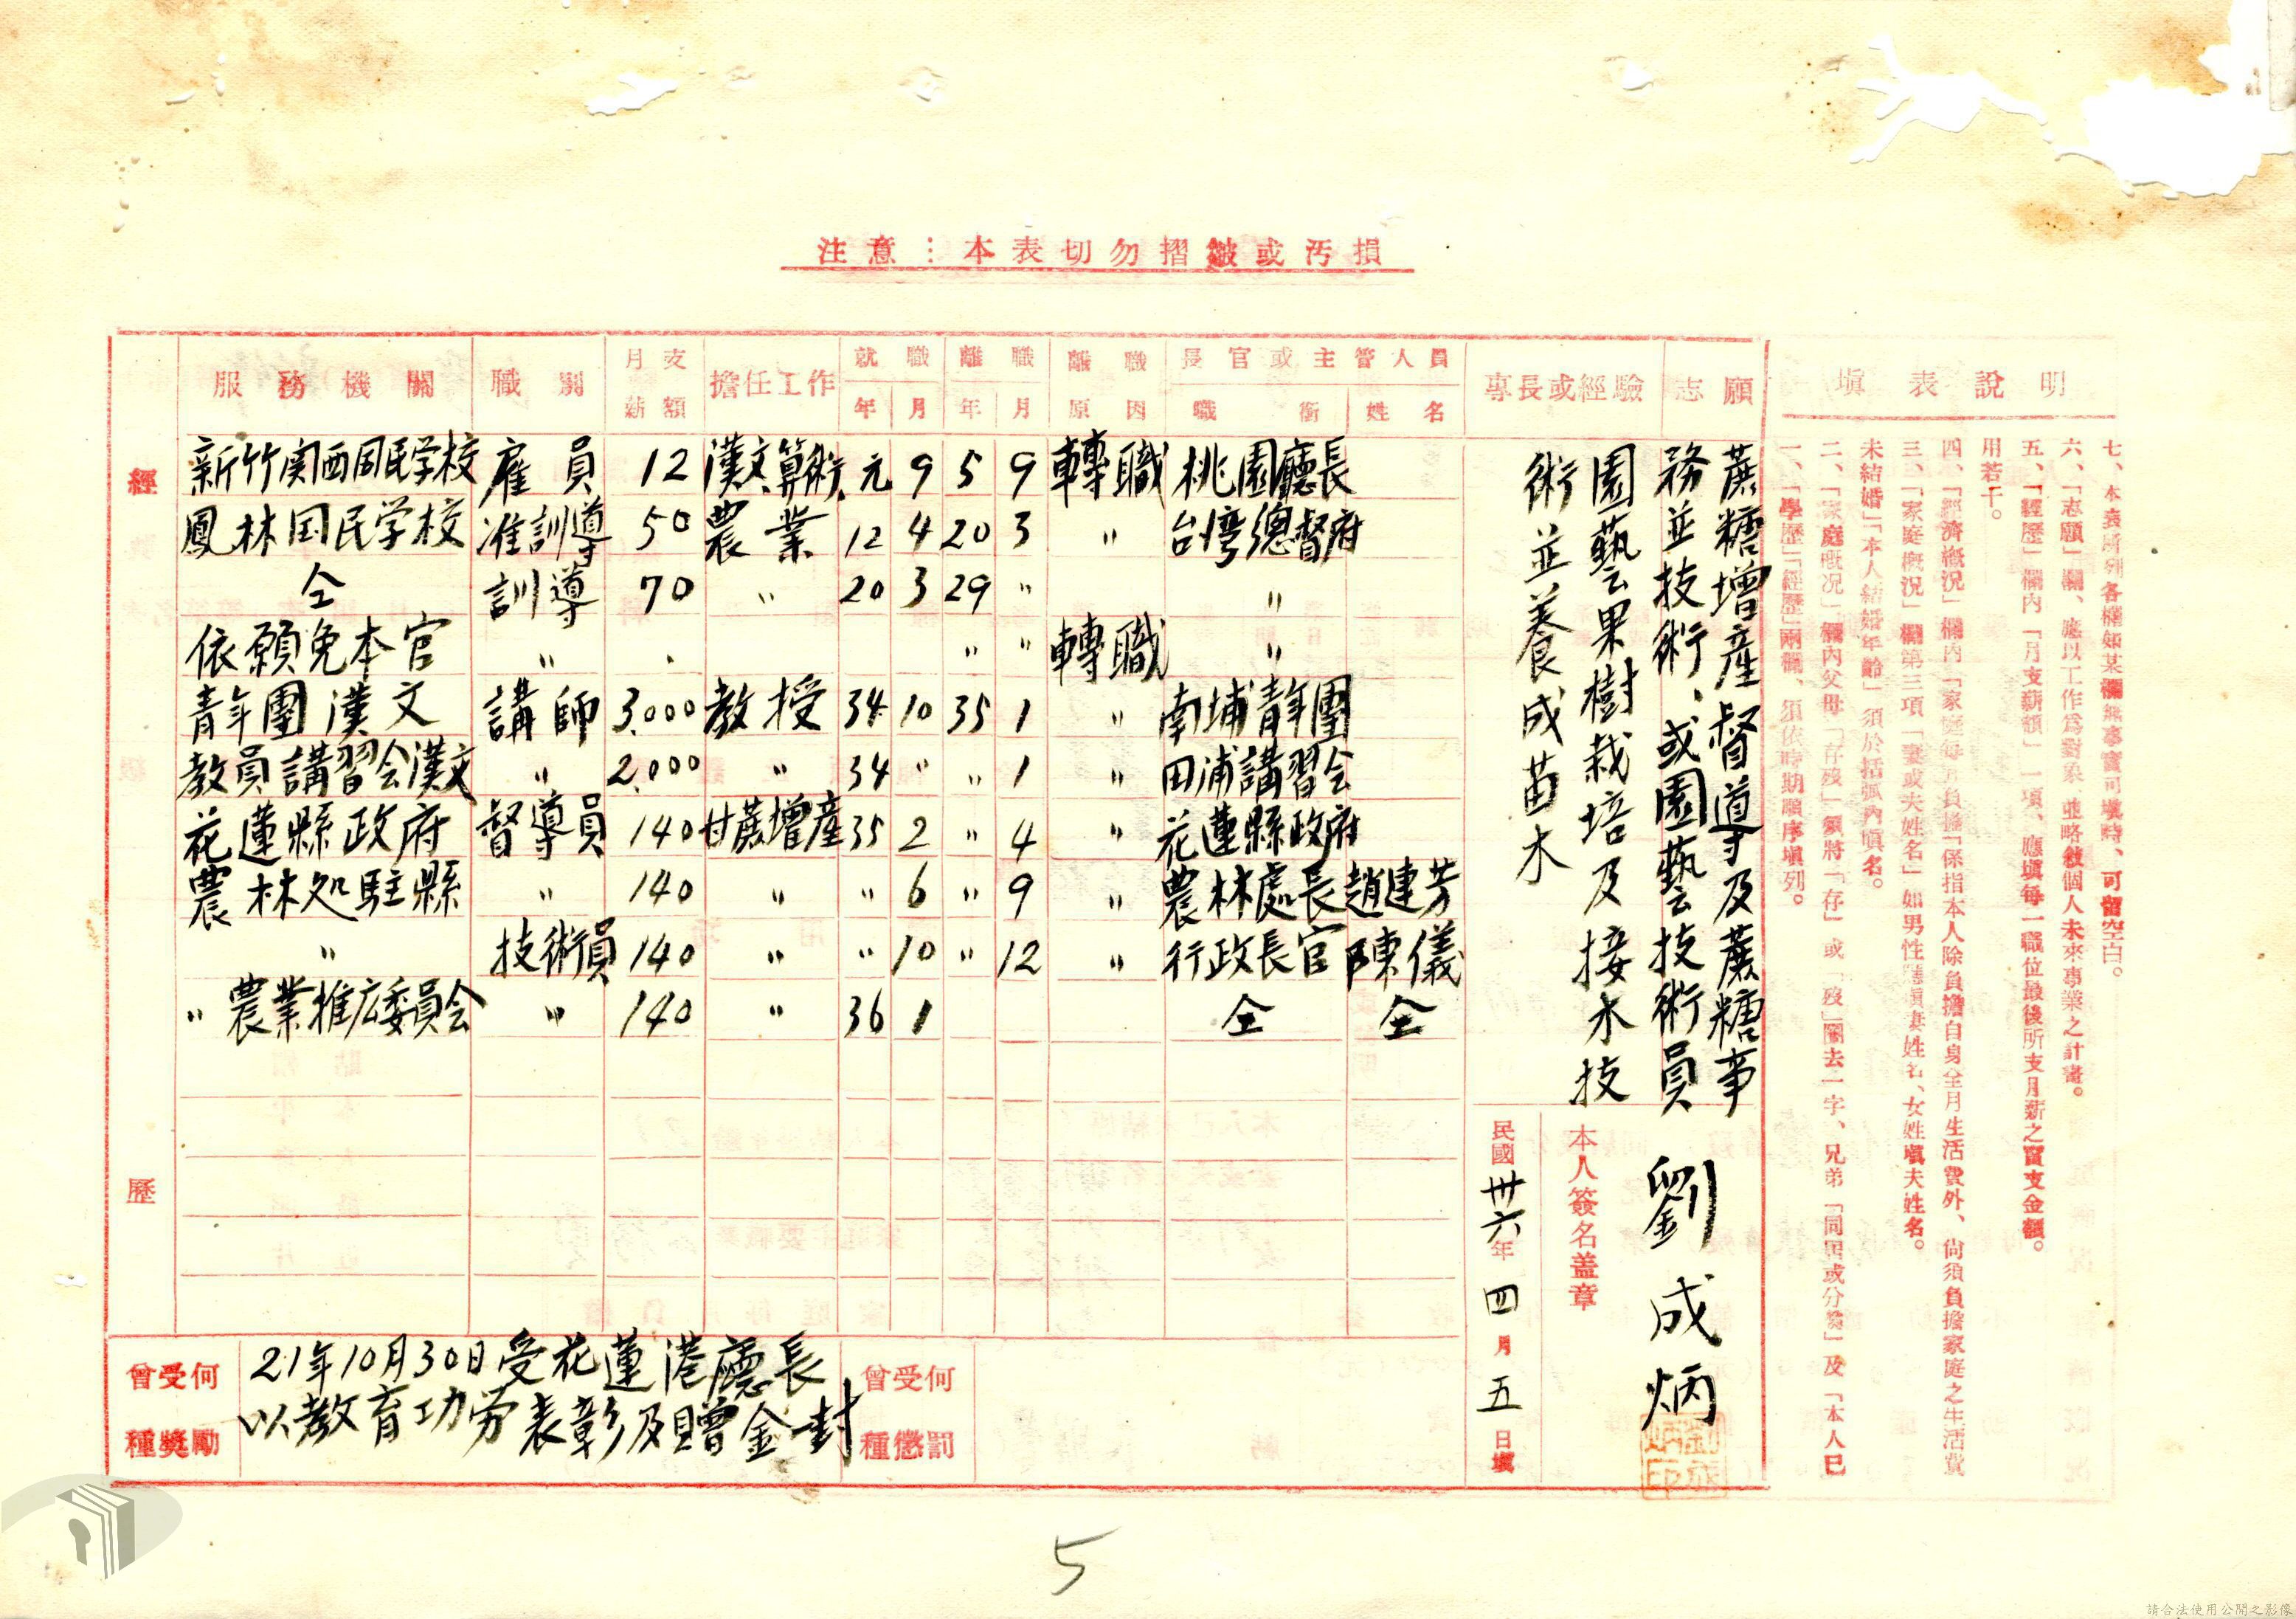 注意：本表切勿摺皺或汚損
經歷
服務機關 職別 月支薪額 擔任工作 就職 年 月 離職 年 月 離職原因 長官或主管人員 職銜 姓名
新竹関西国民学校 雇員 12 漢文、算術、 元 9 5 9 轉職 桃園廳長
鳳林国民学校 准訓導 50 農業 12 4 20 3 〃 台湾總督府
仝 訓導 70 〃 20 3 29 〃 〃
依願免本官 〃 〃 〃 轉職 〃
青年團漢文 講師 3.000 教授 34 10 35 1 〃 南埔青年團
教員講習会漢文 〃 2.000 〃 34 〃 〃 1 〃 田浦講習会
花蓮縣政府 督導員 140 甘蔗增産 35 2 〃 4 〃 花蓮縣政府
農林処駐縣 〃 140 〃 〃 6 〃 9 〃 農林處長 趙連芳
〃 技術員 140 〃 〃 10 〃 12 〃 行政長官 陳儀
〃 農業推広委員会 〃 140 〃 36 1 仝 仝
曾受何種獎勵
21年10月30日受花蓮港廳長
以教育功労表彰及贈金封
曾受何種懲罰
專長或經驗
園藝果樹栽培及接木技
術並養成苗木
志願
蔗糖增産督導及蔗糖事
務並技術、或園藝技術員
本人簽名盖章
劉成炳
劉成炳印
民國卅六年四月五日塡
塡表說明
一、「學歷」「經歷」兩欄、須依時期順序塡列。
二、「家庭概况」欄內父母「存歿」須將「存」或「歿」圈去一字、兄弟「同居或分爨」及「本人已
未結婚」「本人結婚年齡」須於括弧內塡名。
三、「家庭概况」欄第三項「妻或夫姓名」如男性應塡妻姓名、女姓塡夫姓名。
四、「經濟概況」欄內「家庭每月負擔」係指本人除負擔自身全月生活費外、尙須負擔家庭之生活費
用若干。
五、「經歷」欄內「月支薪額」一項、應塡每一職位最後所支月薪之實支金額。
六、「志願」欄、應以工作爲對象、並略敘個人未來事業之計畫。
七、本表所列各欄如某欄無事實可塡時、可留空白。
5
請合法使用公開之影像